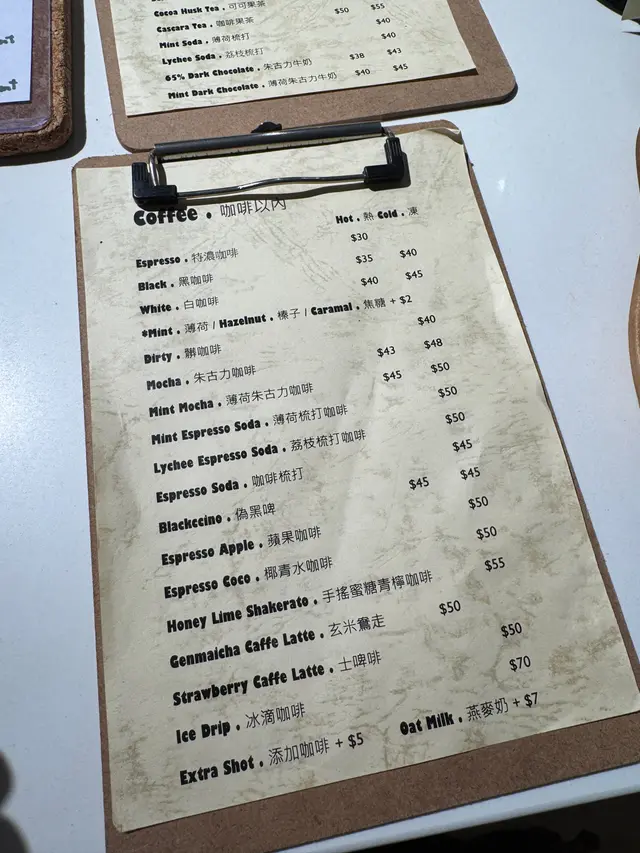 Cocoa Husk Tea . 可可果茶
Cascara Tea . 咖啡果茶 $50 $55
Mint Soda . 薄荷梳打 $40
Lychee Soda . 荔枝梳打 $40
65% Dark Chocolate . 朱古力牛奶 $38 $43
Mint Dark Chocolate . 薄荷朱古力牛奶 $40 $45
Coffee . 咖啡以內 Hot . 熱 Cold . 凍
Espresso . 特濃咖啡 $30
Black . 黑咖啡 $35 $40
White . 白咖啡 $40 $45
*Mint . 薄荷 / Hazelnut . 榛子 / Caramal . 焦糖 + $2
Dirty . 髒咖啡 $40
Mocha . 朱古力咖啡 $43 $48
Mint Mocha . 薄荷朱古力咖啡 $45 $50
Mint Espresso Soda . 薄荷梳打咖啡 $50
Lychee Espresso Soda . 荔枝梳打咖啡 $50
Espresso Soda . 咖啡梳打 $45
Blackccino . 偽黑啤 $45 $45
Espresso Apple . 蘋果咖啡 $50
Espresso Coco . 椰青水咖啡 $50
Honey Lime Shakerato . 手搖蜜糖青檸咖啡 $55
Genmaicha Caffe Latte . 玄米鴛走 $50
Strawberry Caffe Latte . 士啤啡 $50
Ice Drip . 冰滴咖啡 $70
Extra Shot . 添加咖啡 + $5 Oat Milk . 燕麥奶 + $7